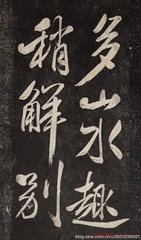 多山水趣
稍解别
blog.sina.com.cn/u/2653296921